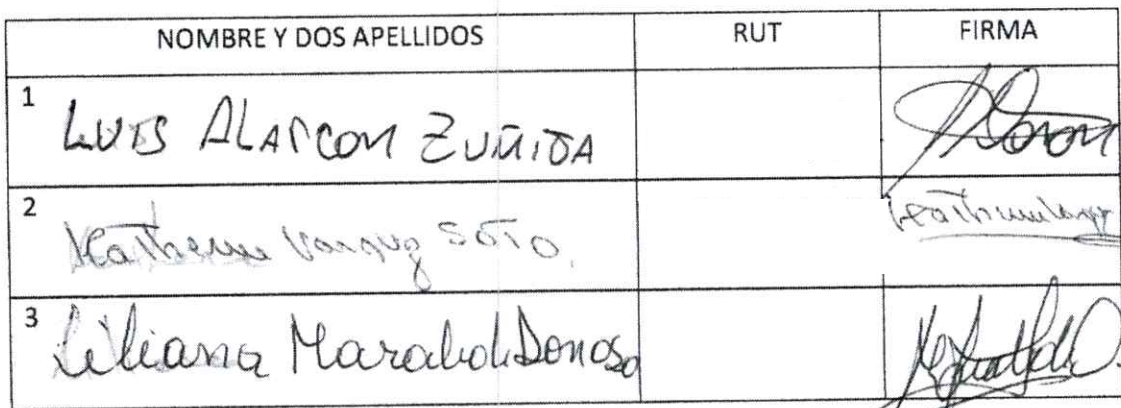 NOMBRE Y DOS APELLIDOS RUT FIRMA
1 LUIS ALARCON ZUÑIGA
2 Katherine Vasquez SOTO.
3 Liliana Marabolí Donoso